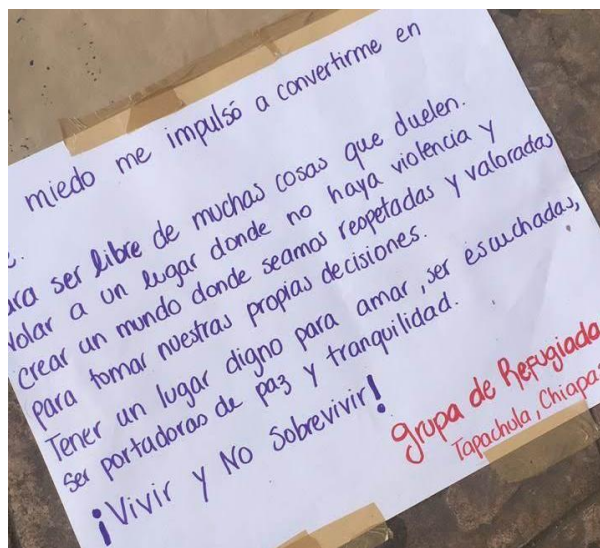 miedo me impulsó a convertirme en
ser libre de muchas cosas que duelen.
Volar a un lugar donde no haya violencia y
crear un mundo donde seamos respetadas y valoradas
para tomar nuestras propias decisiones.
Tener un lugar digno para amar, ser escuchadas,
ser portadoras de paz y tranquilidad.
¡Vivir y No Sobrevivir!
grupa de Refugiada
Tapachula, Chiapas